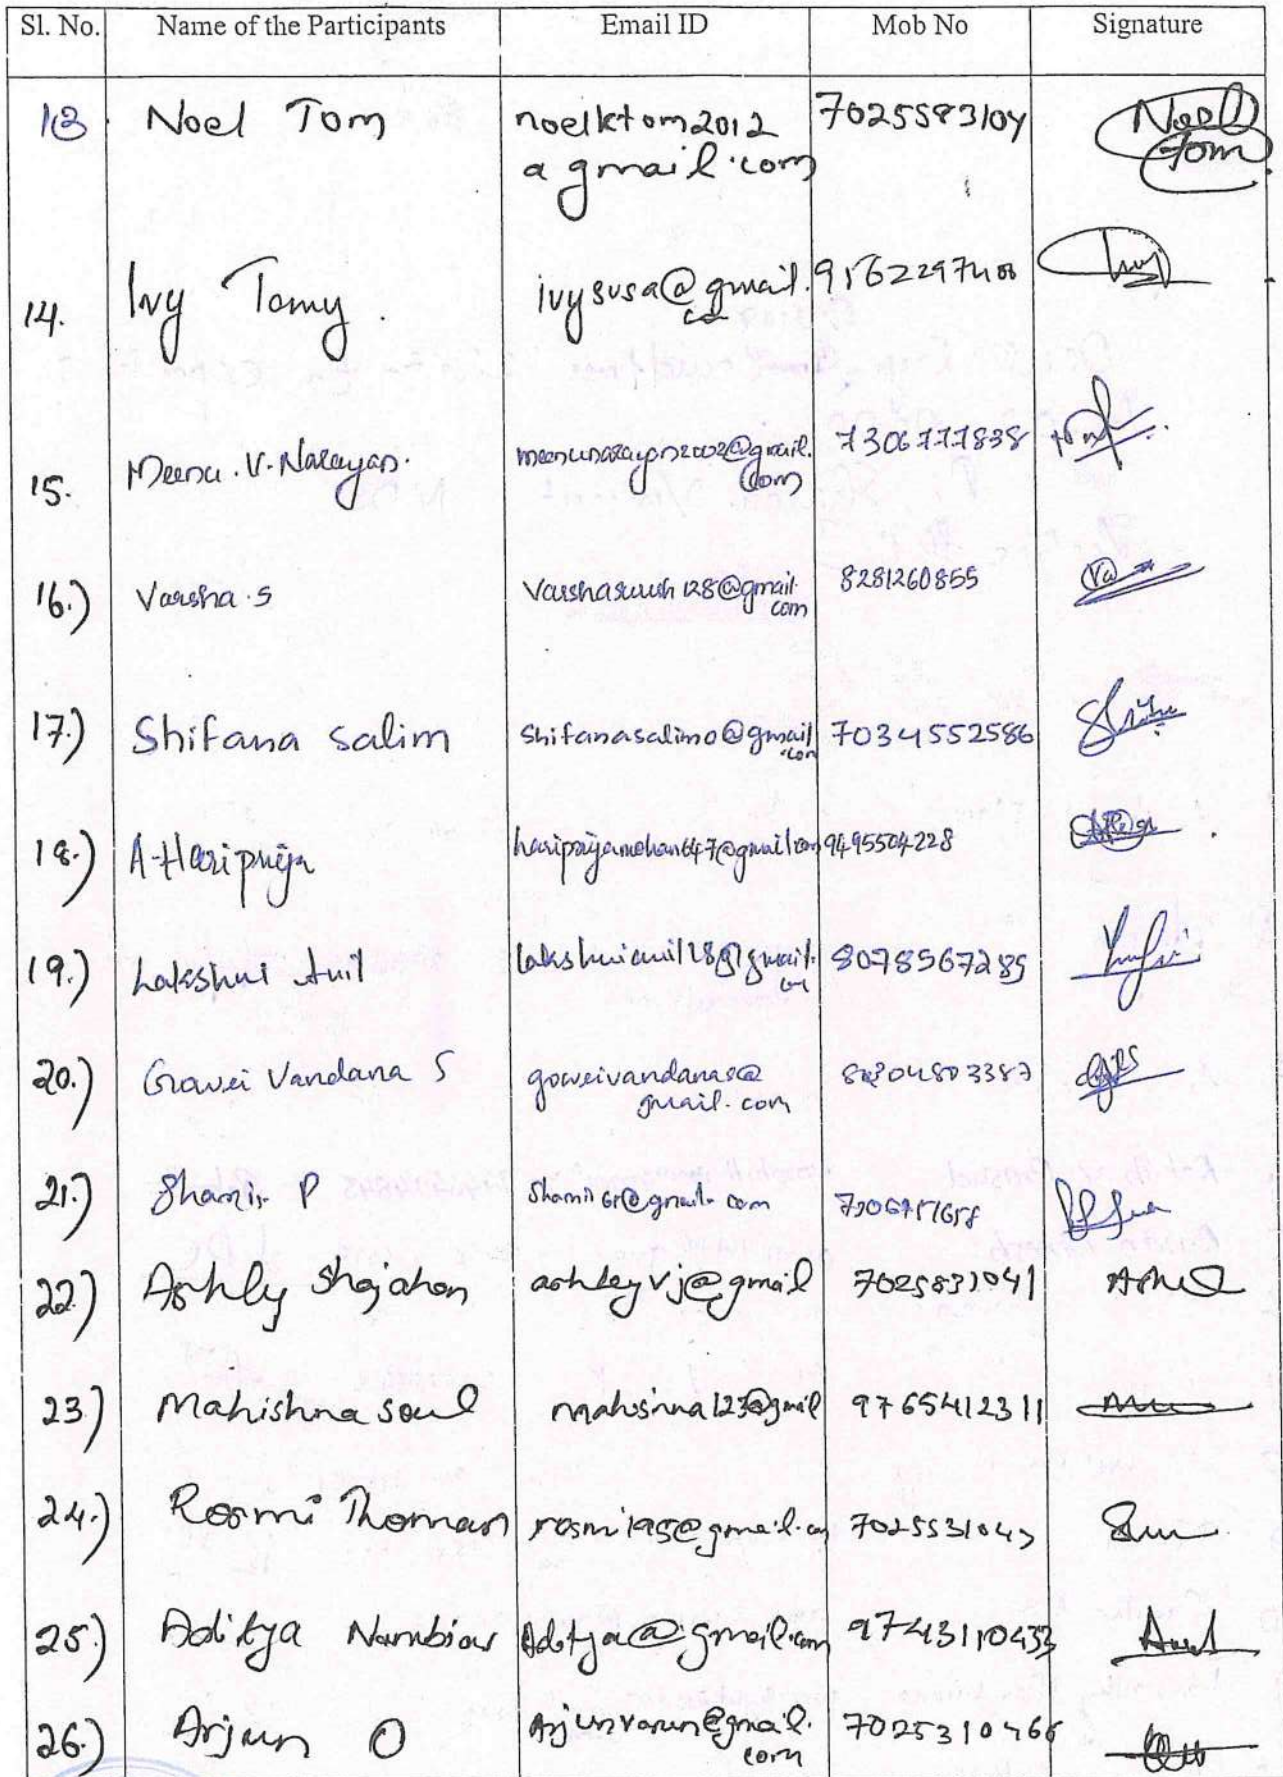 Sl. No. Name of the Participants Email ID Mob No Signature
13. Noel Tom noelktom2012 7025583104 Noel
a gmail.com Tom
14. Ivy Tomy. ivysusa@gmail. 9562297400
co
15. Meenu.V.Narayan. meenunarayan2002@gmail. 7306777838
com
16.) Varsha.S varshasuresh128@gmail. 8281260855
com
17.) Shifana salim shifanasalim0@gmail 7034552586
.com
18.) A-Haripriya haripriyamohan647@gmail.com 9495504228
19.) Lakshmi Anil lakshmianil28@gmail. 8078567289
20.) Gowri Vandana S gowrivandanas@
gmail.com
21.) Shamir P
22.) Ashly Shajahan ashleyvj@gmail 7025831041
23.) Mahishna soul mahisnna123@gmail 9765412311
24.) Rosmi Thomas rosmi195@gmail.com
25.) Aditya Nambiar Aditya@gmail.com 9743110433
26.) Arjun O Arjunvarun@gmail. 7025310466
com